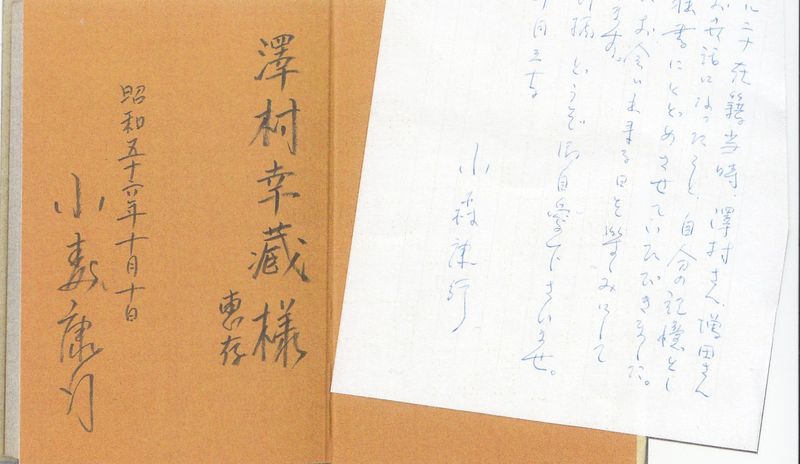 在籍当時、澤村さん、増田さん
お世話になったこと、自分の記憶とし
書にとどめさせていただきました。
お会い出来る日を楽しみにして
ます。
どうぞ御自愛下さいませ。
小森康行
澤村幸蔵様
恵存
昭和五十六年十月十日
小森康行